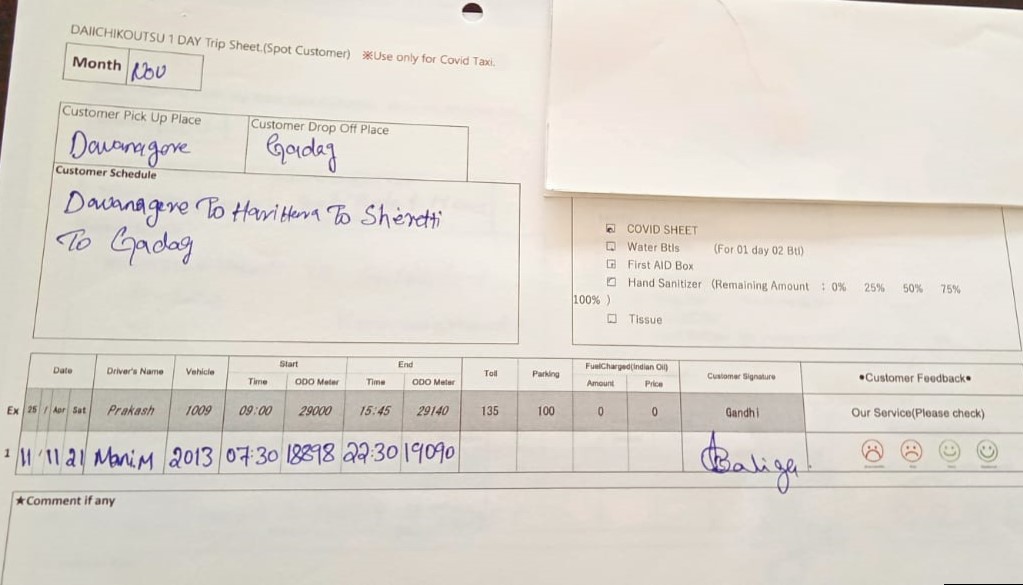 DAIICHIKOUTSU 1 DAY Trip Sheet.(Spot Customer) ※Use only for Covid Taxi.
Month Nov
Customer Pick Up Place Customer Drop Off Place
Davanagere Gadag
Customer Schedule
Davanagere To Harihara To Sheretti
To Gadag
COVID SHEET
Water Btls (For 01 day 02 Btl)
First AID Box
Hand Sanitizer (Remaining Amount : 0% 25% 50% 75%
100% )
Tissue
Date Driver's Name Vehicle Start End Toll Parking FuelCharged(Indian Oil) Customer Signature •Customer Feedback•
Time ODO Meter Time ODO Meter Amount Price
Ex 25 / Apr Sat Prakash 1009 09:00 29000 15:45 29140 135 100 0 0 Gandhi Our Service(Please check)
1 11 11 21 Mani.M 2013 07:30 18898 22:30 19090 Baliga
★Comment if any